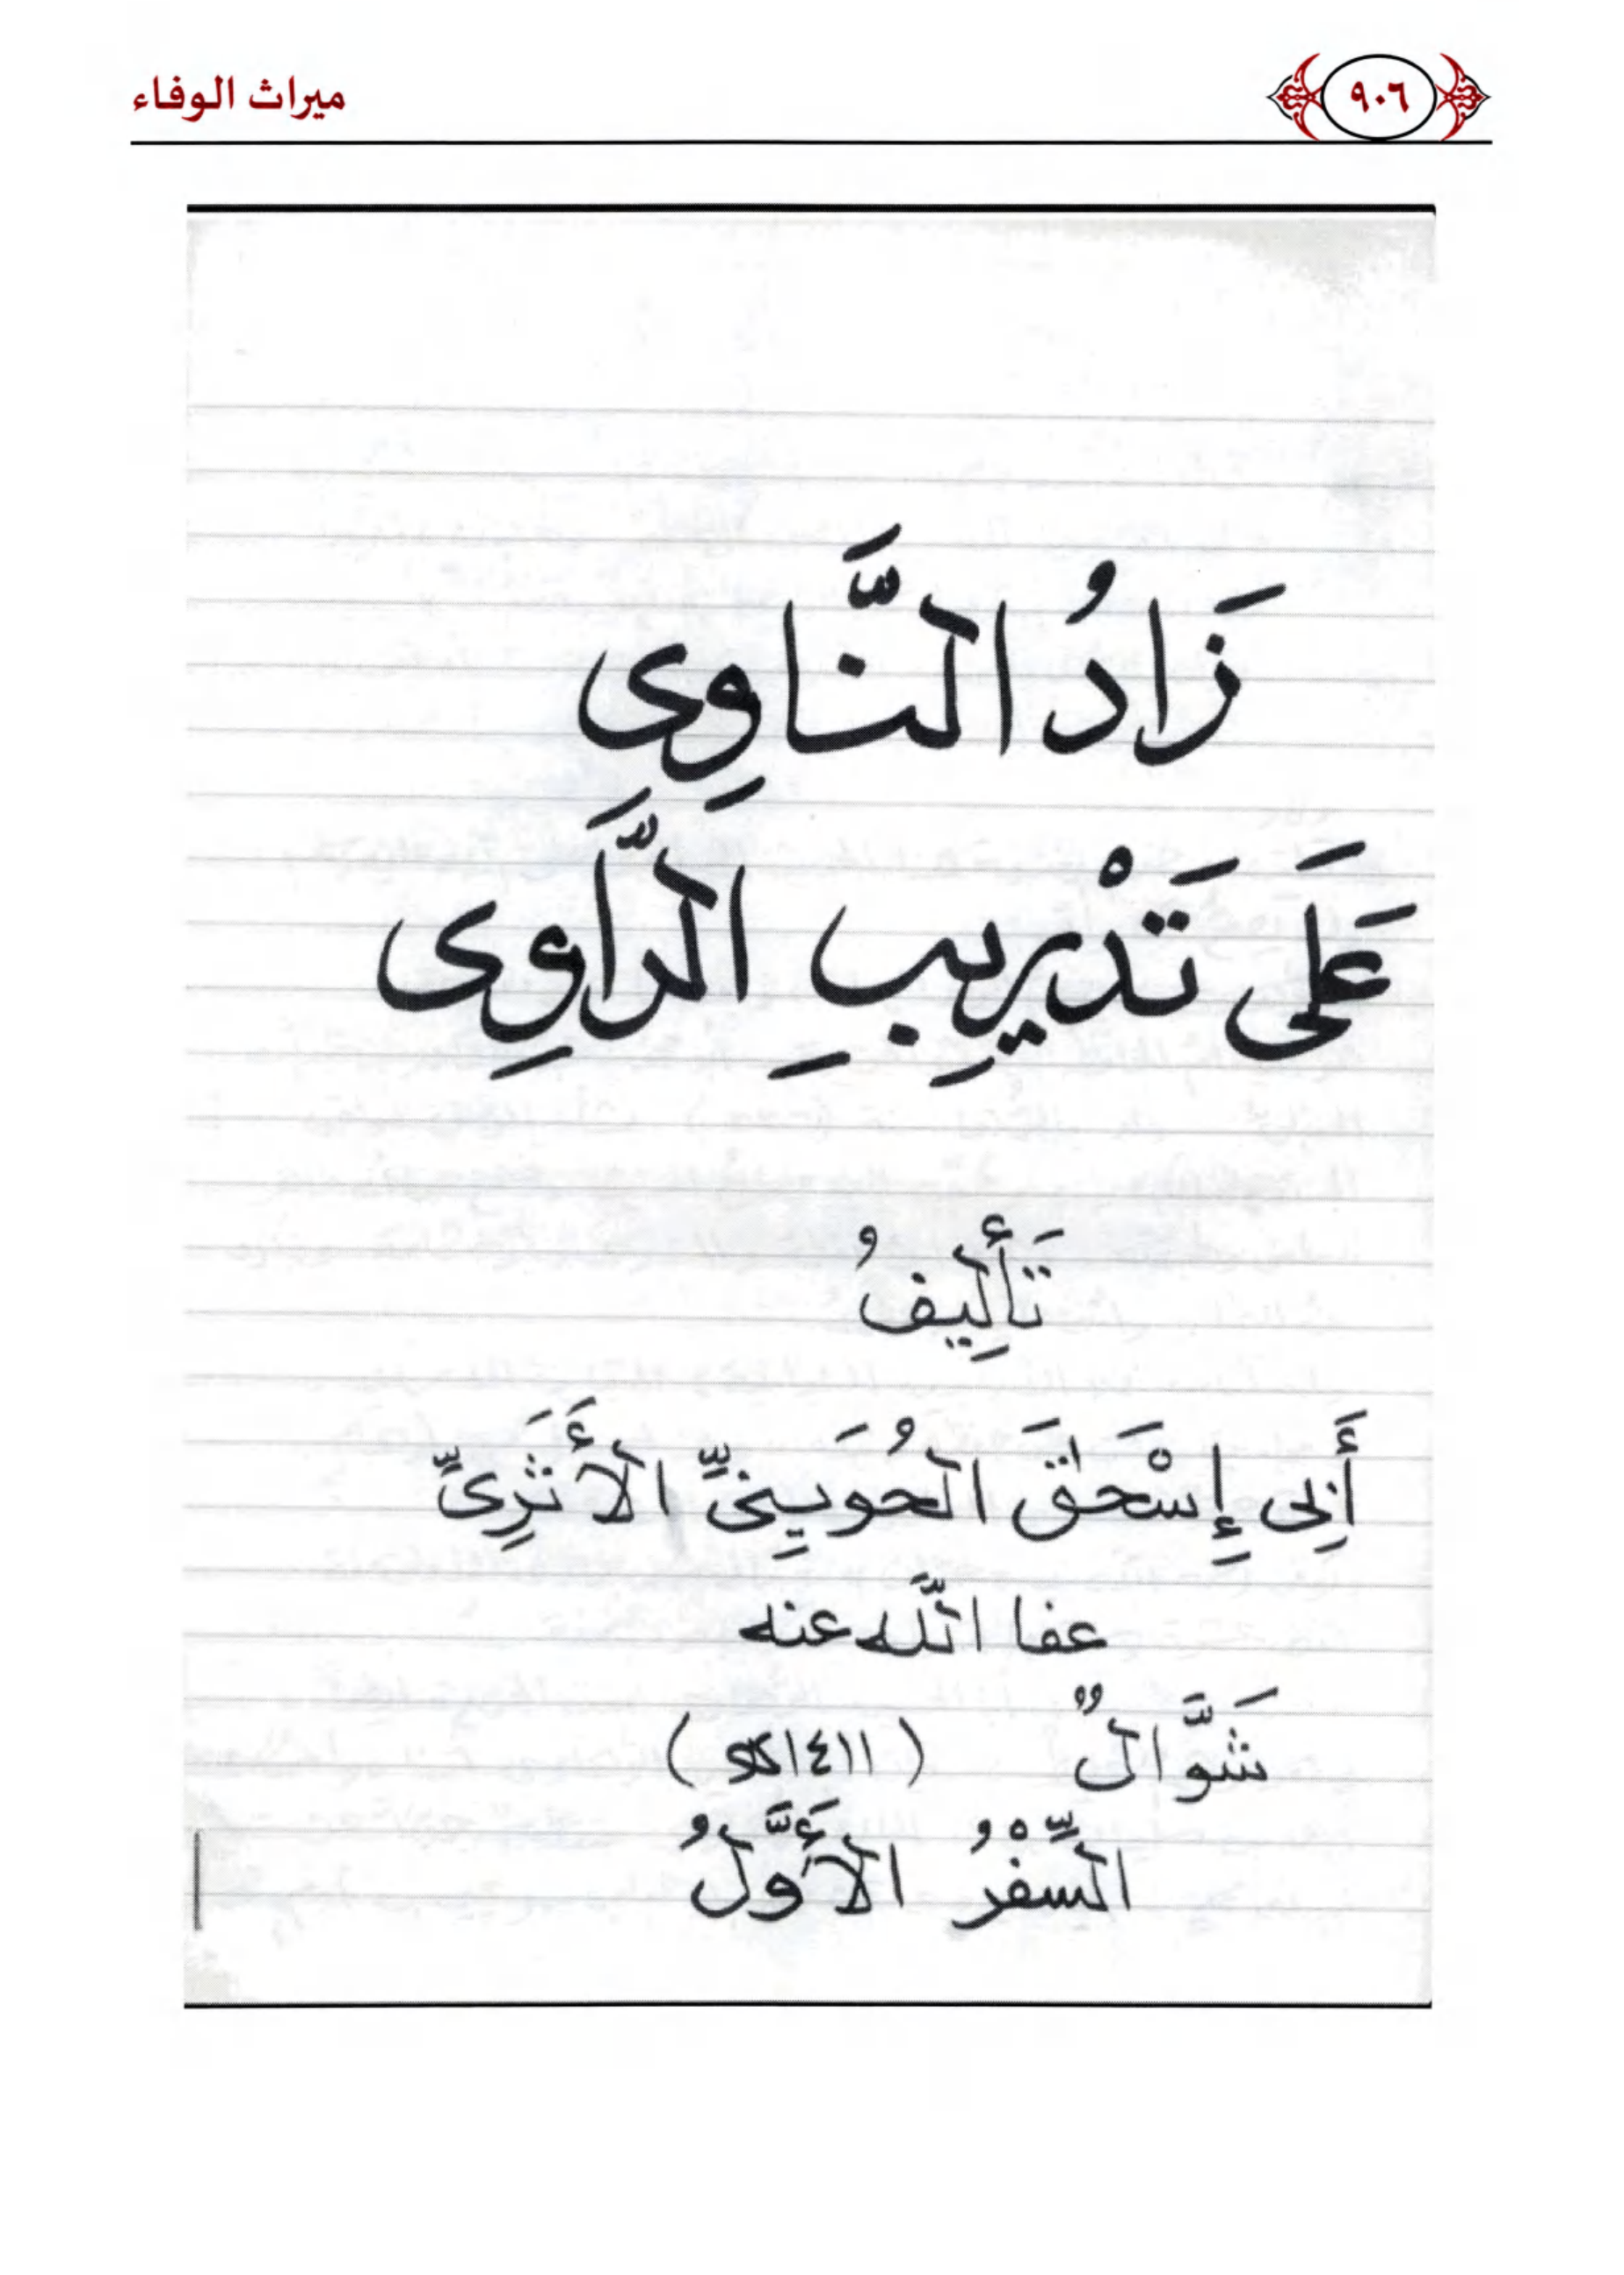 ٩٠٦
ميراث الوفاء
زَادُ النَّاوِى
عَلَى تَدْرِيبِ الرَّاوِى
تَأْلِيفُ
أَبِى إِسْحَٰقَ الحُوَيْنِىِّ الأَثَرِىِّ
عفا اللَّه عنه
شَوَّالٌ ( ١٤١١ )
السِّفْرُ الأَوَّلُ